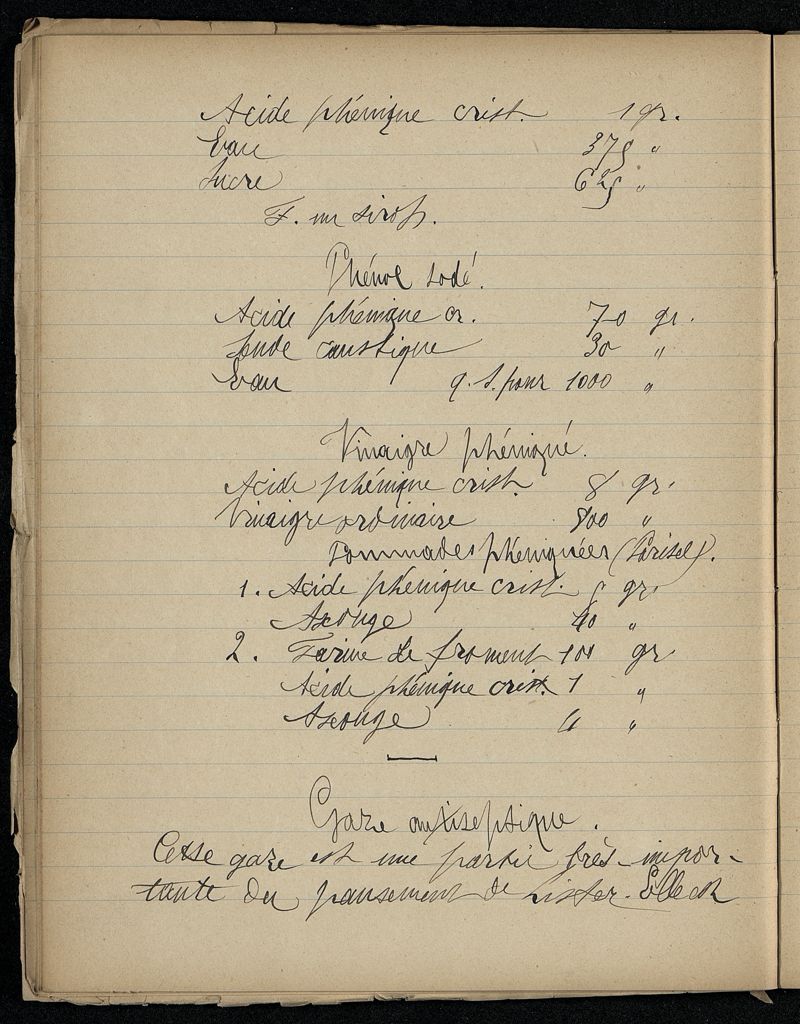 Acide phénique crist. 1 gr.
Eau 375 "
Sucre 625 "
F. un sirop.
Phénol sodé.
Acide phénique cr. 70 gr.
Soude caustique 30 "
Eau q. s. pour 1000 "
Vinaigre phéniqué.
Acide phénique crist. 8 gr.
Vinaigre ordinaire 800 "
Pommades phéniquées (Parisel).
1. Acide phénique crist. gr.
Axonge 40 "
2. Farine de froment 100 gr
Acide phénique crist. 1 "
Axonge "
Gaze antiseptique.
Cette gaze est une partie très-impor-
tante du pansement de Lister. Elle est